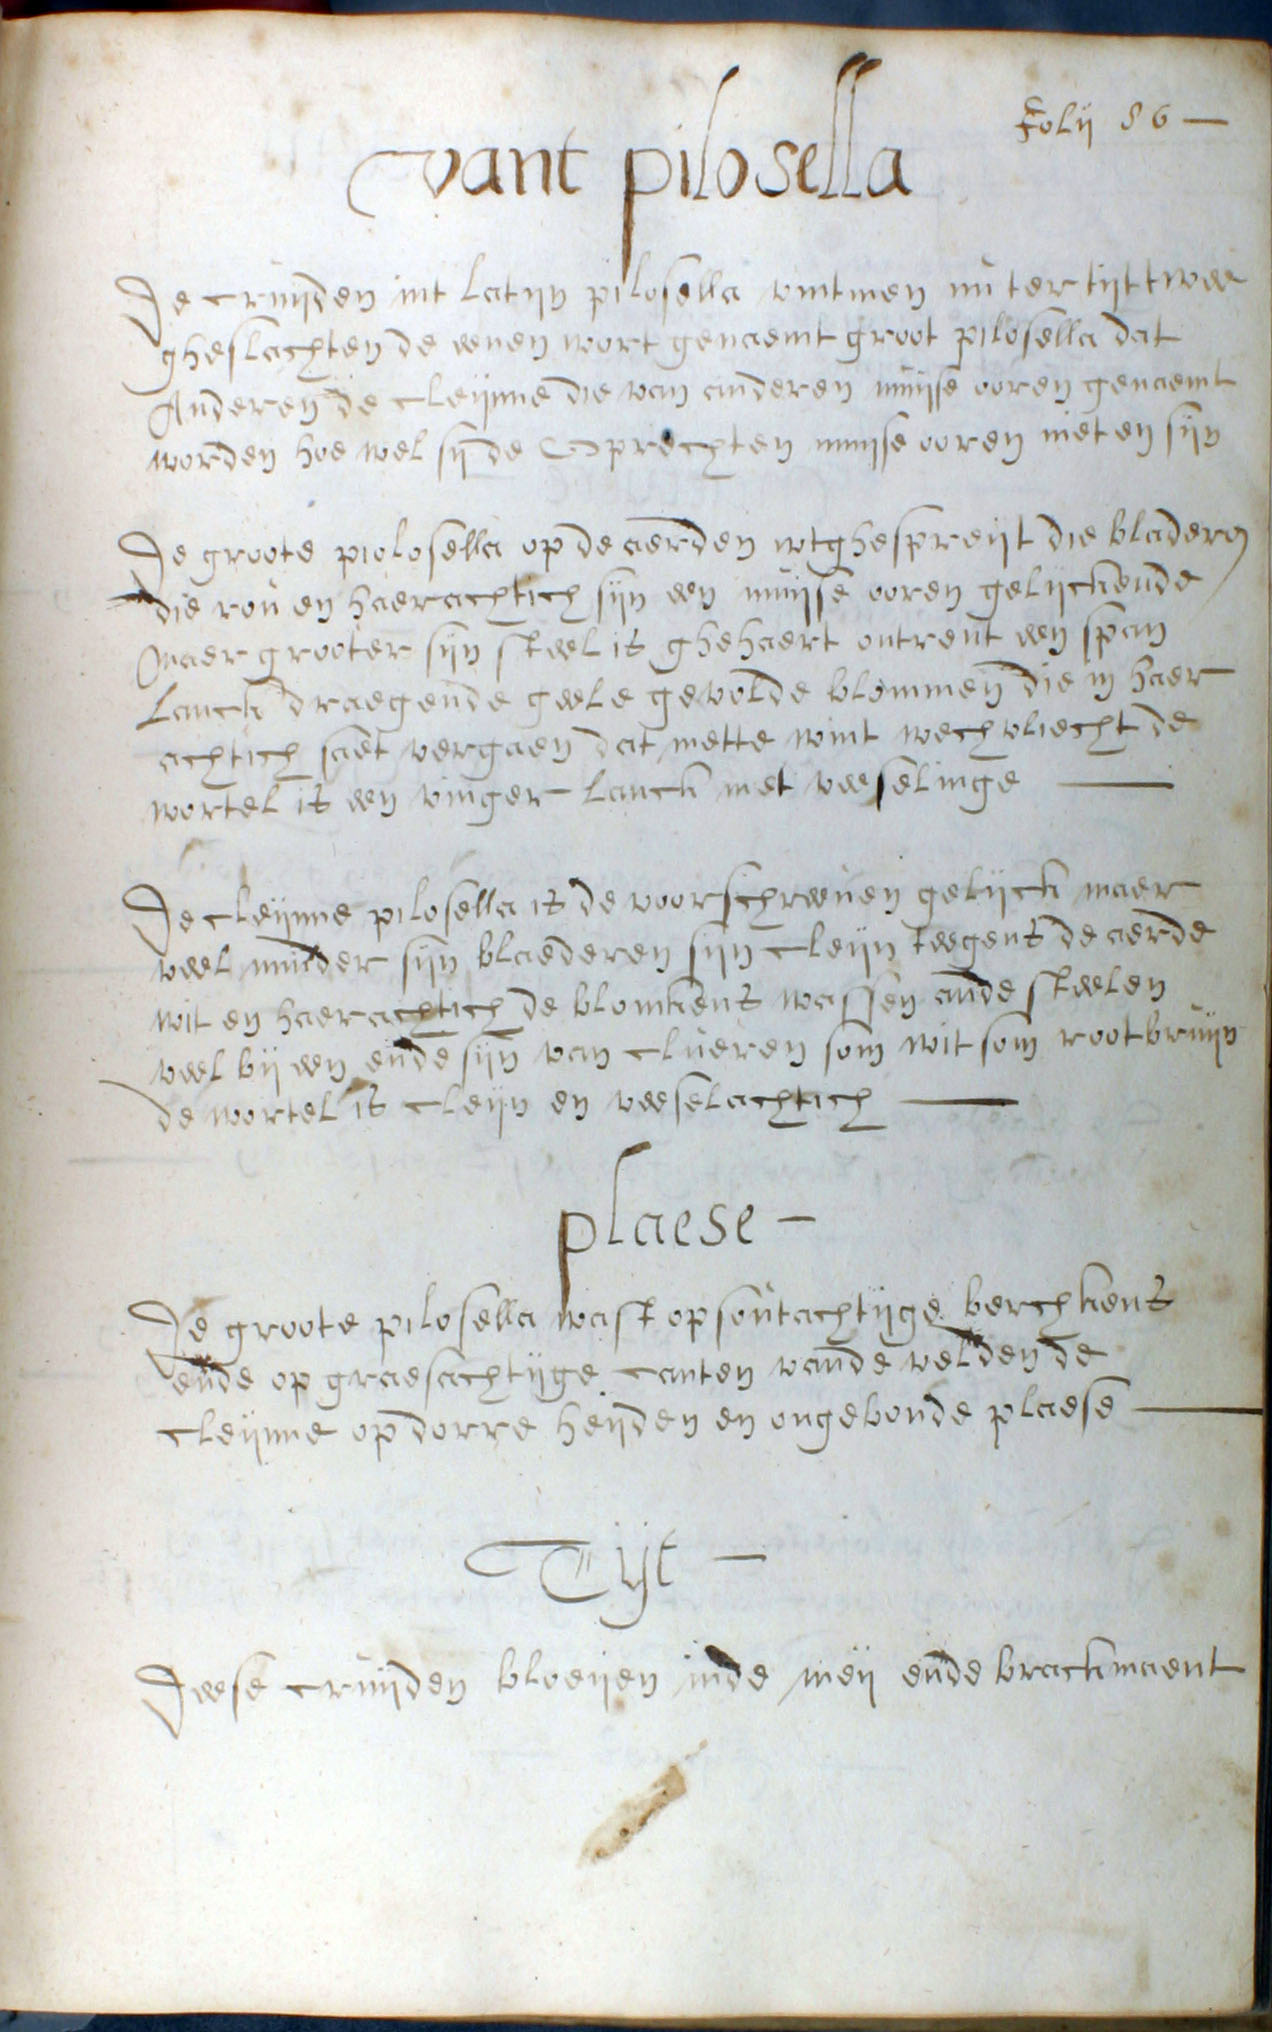 Folij 86
vant pilosella
De cruijden int latijn pilosella vintmen nu ter tijt twee
gheslachten de eenen wort genaemt groot pilosella dat
Anderen de cleijnne die van anderen muijse ooren genaemt
worden hoe wel sij de Oprechten muijse ooren niet en sijn
De groote piolosella op de aerden wtghespreijt die bladeren
die rou en haerachtich sijn een muijse ooren gelijckende
maer grooter sijn steel is ghehaert ontrent een span
lanck draegende geele gevolde blommen die in haer
achtich saet vergaen dat mette wint wech vliecht de
wortel is een vinger lanck met veeselinge
De cleijnne pilosella is de voorschreeuen gelijck maer
veel minder sijn blaederen sijn cleijn teegens de aerde
wit en haerachtich de blomkens wassen ande steelen
veel bij een ende sijn van clueren som wit som root bruijn
de wortel is cleijn en veeselachtich
plaese
De groote pilosella wast op sontachtijge berchkens
ende op graesachtijge canten vande velden de
cleijnne op dorre heijden en ongebonde plaese
Tijt
Deese cruijden bloeijen inde meij ende brackmaent